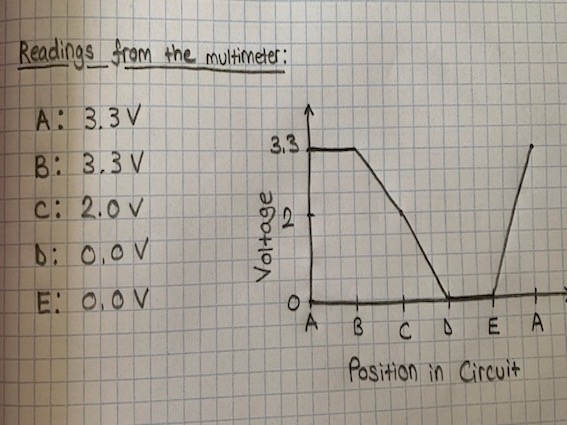 Readings from the multimeter:
A: 3.3 V
B: 3.3 V
C: 2.0 V
D: 0.0 V
E: 0.0 V
Voltage
3.3
2
0
A B C D E A
Position in Circuit